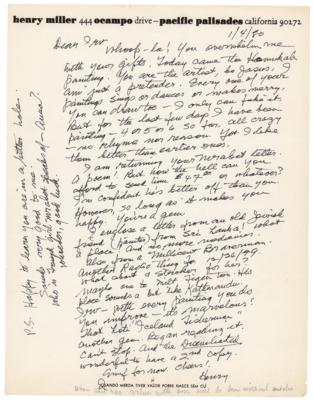 henry miller 444 ocampo drive - pacific palisades california 90272
1/4/80
Dear Irv
Whoop-la! You overwhelm me
with your gifts. Today came the Hanukah
painting. You are the artist, by Jesus. I
am just a pretender. Every one of your
paintings sings or dances or makes merry.
You can draw too - I only can fake it.
But for the last few days I have been
painting - 4 or 5 or 6 so far, all crazy
- no rhyme nor reason. Yet I like
them better than earlier ones.
I am returning your letter.
A poem. But how the hell can you
afford to send him or whatever?
I'm confident he's better off than you.
However, so long as it makes you
happy. You're a gem.
I enclose a letter from an old Jewish
friend (paints) from Sri Lanka. What
a place. And so, more
Also from a
Another Radio thing for 12/26/79
What about a for his?
Maybe one to Milt too. His
place sounds a bit like Kathmandu.
Irv - with every painting you do
you improve - it's marvelous!
That Loti "Iceland Fisherman"
another gem. Began reading it.
Can't stop. And the
wonderful to have a 2nd copy.
Enuf for now. Cheers!
Henry
P.S. Happy to learn you are in a better
sounds very good to me.
QUANDO MERDA TIVER VALOR POBRE NASCE SEM CU